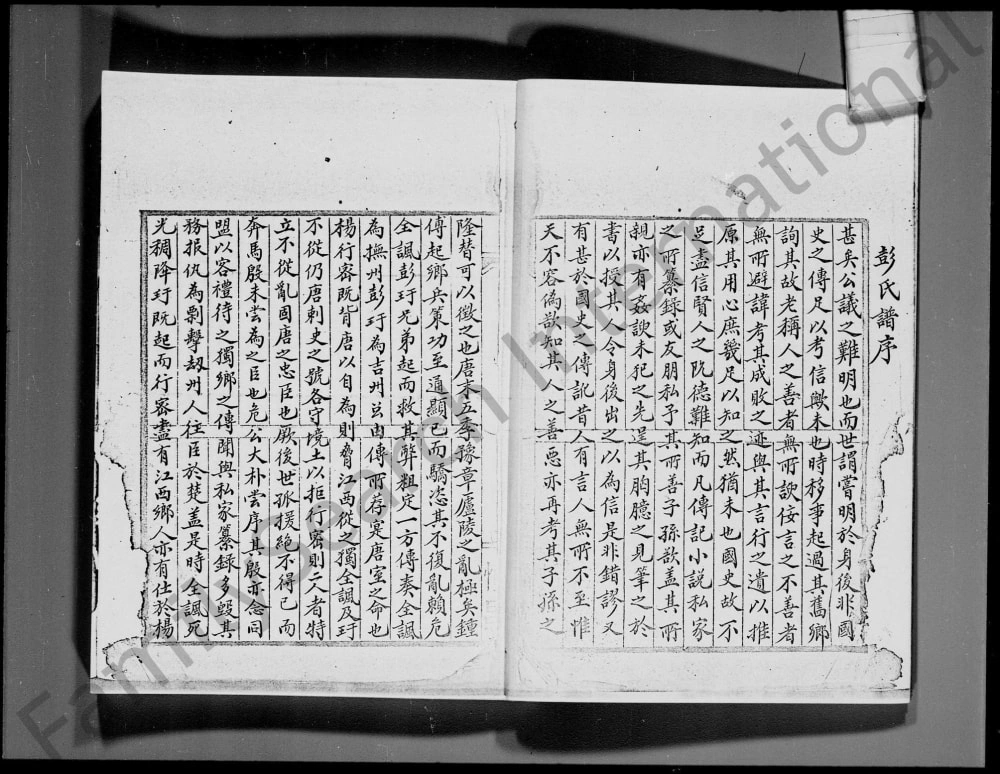 彭氏譜序
甚矣公議之難明也而世謂嘗明於身後非國
史之傳足以考信歟未也時移事起過其舊鄉
詢其故老稱人之善者無所諛佞言之不善者
無所避諱考其成敗之迹與其言行之遺以推
原其用心庶幾足以知之然猶未也國史故不
足盡信賢人之阨德難知而凡傳記小說私家
之所纂錄或友朋私予其所善子孫欲盖其所
親亦有姦諛未死之先逞其胸臆之見筆之於
書以授其人令身後出之以為信是非錯謬又
有甚於國史之傳訛昔人有言人無所不至惟
天不容偽欲知其人之善惡亦再考其子孫之
隆替可以徵之也唐末五季豫章廬陵之亂極矣鍾
傳起鄉兵策功至通顯已而驕恣其不復亂賴危
全諷彭玕兄弟起而救其弊粗定一方傳奏全諷
為撫州彭玕為吉州玆由傳所存寔唐室之命也
楊行密既背唐以自為則脅江西從之獨全諷及玕
不從仍唐刺史之號各守境土以拒行密則二人者特
立不從亂固唐之忠臣也厥後世孤援絕不得已而
奔馬殷未嘗為之臣也危公大朴嘗序其殷亦念同
盟以客禮待之獨鄉之傳聞與私家纂錄多毀其
務报仇為剽擊刼州人往臣於楚盖是時全諷死
光稠降玕既起而行密盡有江西鄉人亦有仕於楊
Family Search International